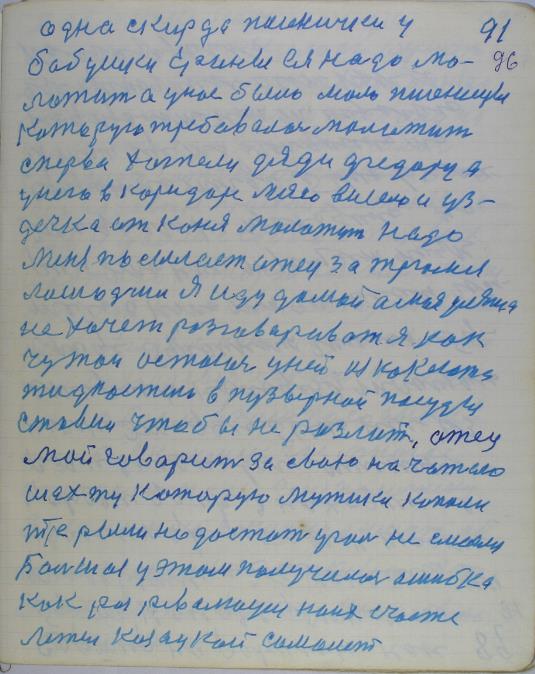 одна скирда пшеницы у 91
бабушки Ерины ея надо мо- 96
лотит а унос было моло пшеницы
которуго требовалоя молотит
сперва хотели дяди федору а
унего в коридоре мясо висело и уз-
дечка от коня молотит надо
меня посылает отец за трюми
лошодми я иду домой а моя
не хочет розговариват я как
чужой осталоя уней
жидкостью в пузырной посуды
ставил чтобы не розлит, отец
мой говорит за свою начатою
шахту которую мужики копали
но достат угол не смогли
Большая у этом получилоя ошибка
как роз революция
козацкой самолет